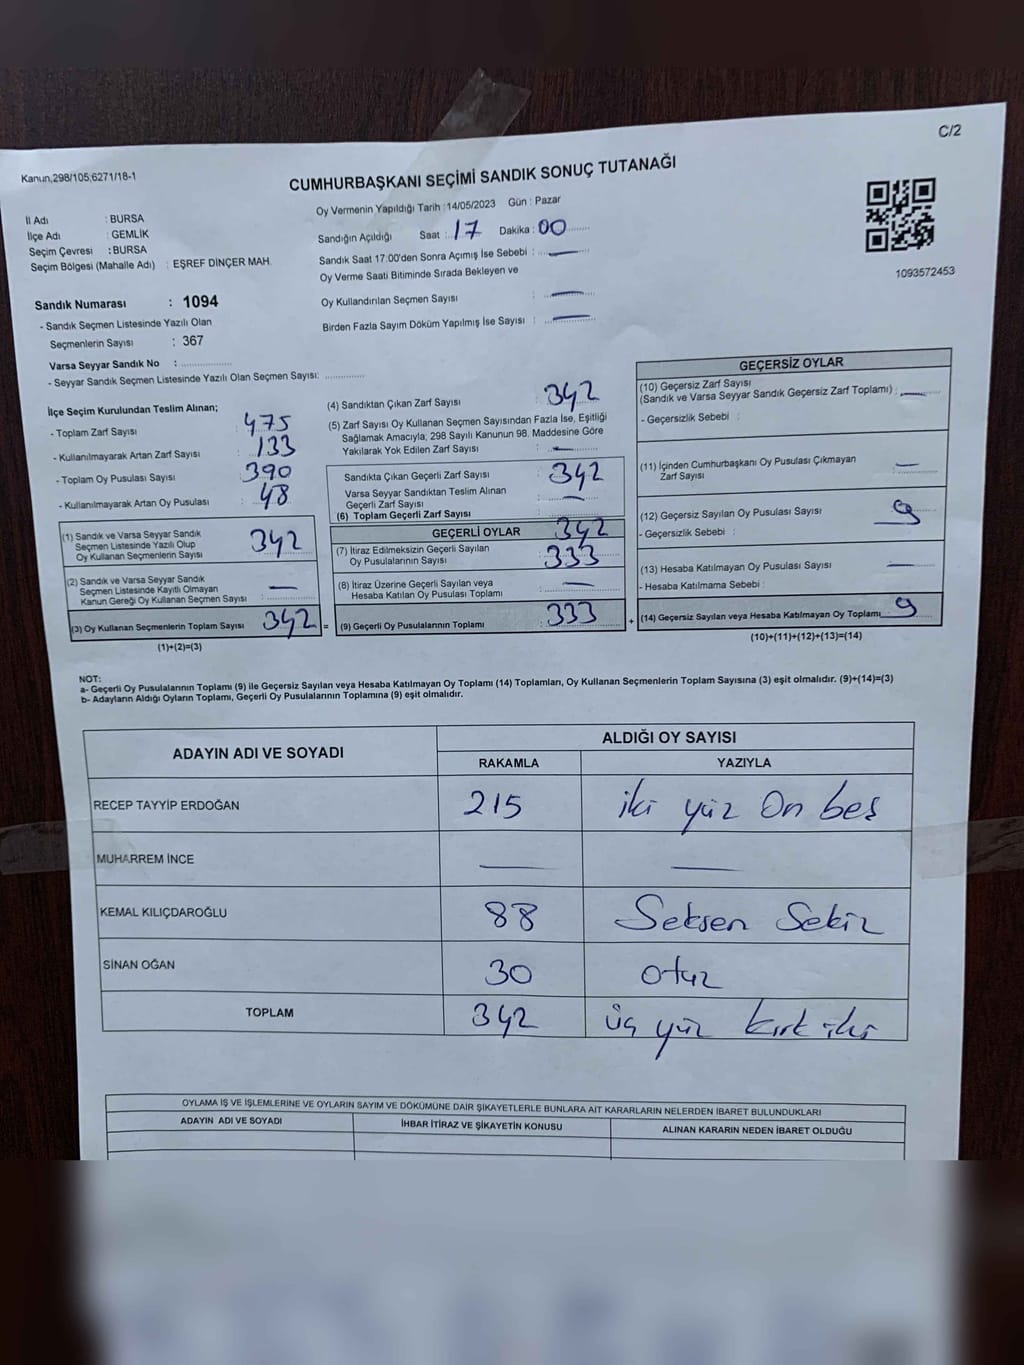 C/2
Kanun,298/105,6271/18-1
CUMHURBAŞKANI SEÇİMİ SANDIK SONUÇ TUTANAĞI
İl Adı : BURSA
İlçe Adı : GEMLİK
Seçim Çevresi : BURSA
Seçim Bölgesi (Mahalle Adı) : EŞREF DİNÇER MAH.
Sandık Numarası : 1094
- Sandık Seçmen Listesinde Yazılı Olan
Seçmenlerin Sayısı : 367
Varsa Seyyar Sandık No :
- Seyyar Sandık Seçmen Listesinde Yazılı Olan Seçmen Sayısı:
Oy Vermenin Yapıldığı Tarih :14/05/2023 Gün : Pazar
Sandığın Açıldığı Saat : 17 Dakika : 00
Sandık Saat 17:00'den Sonra Açımış İse Sebebi : —
Oy Verme Saati Bitiminde Sırada Bekleyen ve
Oy Kullandırılan Seçmen Sayısı : —
Birden Fazla Sayım Döküm Yapılmış İse Sayısı : —
1093572453
İlçe Seçim Kurulundan Teslim Alınan;
- Toplam Zarf Sayısı : 475
- Kullanılmayarak Artan Zarf Sayısı : 133
- Toplam Oy Pusulası Sayısı : 390
- Kullanılmayarak Artan Oy Pusulası : 48
(1) Sandık ve Varsa Seyyar Sandık
Seçmen Listesinde Yazılı Olup
Oy Kullanan Seçmenlerin Sayısı : 342
(2) Sandık ve Varsa Seyyar Sandık
Seçmen Listesinde Kayıtlı Olmayan
Kanun Gereği Oy Kullanan Seçmen Sayısı : —
(3) Oy Kullanan Seçmenlerin Toplam Sayısı : 342 =
(1)+(2)=(3)
(4) Sandıktan Çıkan Zarf Sayısı : 342
(5) Zarf Sayısı Oy Kullanan Seçmen Sayısından Fazla İse, Eşitliği
Sağlamak Amacıyla, 298 Sayılı Kanunun 98. Maddesine Göre
Yakılarak Yok Edilen Zarf Sayısı : —
Sandıkta Çıkan Geçerli Zarf Sayısı : 342
Varsa Seyyar Sandıktan Teslim Alınan
Geçerli Zarf Sayısı : —
(6) Toplam Geçerli Zarf Sayısı : 342
GEÇERLİ OYLAR
(7) İtiraz Edilmeksizin Geçerli Sayılan
Oy Pusulalarının Sayısı : 333
(8) İtiraz Üzerine Geçerli Sayılan veya
Hesaba Katılan Oy Pusulası Toplamı : —
(9) Geçerli Oy Pusulalarının Toplamı : 333 +
GEÇERSİZ OYLAR
(10) Geçersiz Zarf Sayısı
(Sandık ve Varsa Seyyar Sandık Geçersiz Zarf Toplamı) : —
- Geçersizlik Sebebi :
(11) İçinden Cumhurbaşkanı Oy Pusulası Çıkmayan
Zarf Sayısı : —
(12) Geçersiz Sayılan Oy Pusulası Sayısı : 9
- Geçersizlik Sebebi :
(13) Hesaba Katılmayan Oy Pusulası Sayısı : —
- Hesaba Katılmama Sebebi :
(14) Geçersiz Sayılan veya Hesaba Katılmayan Oy Toplamı : 9
(10)+(11)+(12)+(13)=(14)
NOT:
a- Geçerli Oy Pusulalarının Toplamı (9) ile Geçersiz Sayılan veya Hesaba Katılmayan Oy Toplamı (14) Toplamları, Oy Kullanan Seçmenlerin Toplam Sayısına (3) eşit olmalıdır. (9)+(14)=(3)
b- Adayların Aldığı Oyların Toplamı, Geçerli Oy Pusulalarının Toplamına (9) eşit olmalıdır.
ADAYIN ADI VE SOYADI
ALDIĞI OY SAYISI
RAKAMLA YAZIYLA
RECEP TAYYİP ERDOĞAN 215 iki yüz On beş
MUHARREM İNCE — —
KEMAL KILIÇDAROĞLU 88 Seksen Sekiz
SİNAN OĞAN 30 otuz
TOPLAM 342 üç yüz kırk iki
OYLAMA İŞ VE İŞLEMLERİNE VE OYLARIN SAYIM VE DÖKÜMÜNE DAİR ŞİKAYETLERLE BUNLARA AİT KARARLARIN NELERDEN İBARET BULUNDUKLARI
ADAYIN ADI VE SOYADI İHBAR İTİRAZ VE ŞİKAYETİN KONUSU ALINAN KARARIN NEDEN İBARET OLDUĞU